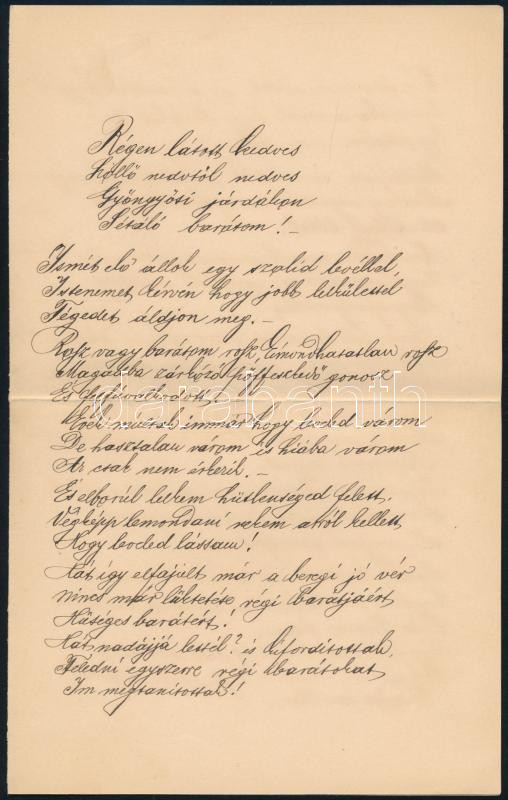 Régen látott kedves
Szőllő nedvtől nedves
Gyöngyösi járdákon
Sétáló barátom! –
Ismét elő állok egy szolid levéllel,
Istenemet kérvén hogy jobb lelkülettel
Tégedet áldjon meg. –
Rosz vagy barátom rosz, kimondhatatlan rosz
Magadba zárkózó pöffeszkedő gonosz
És
Évek múltak immár hogy leveled várom
De hasztalan várom és hiába várom
Az csak nem érkezik. –
És elborúl lelkem hütlenséged felett,
Végképp lemondani nekem arról kellett
Hogy leveled lássam!
Hát így elfajúlt már a beregi jó vér
nincs már lüktetése régi barátjáért
Hűséges barátért.
Hát nadájjá lettél? és kifordítottak,
Feledni egyszerre régi barátokat
Im megtanítottak!
darabanth